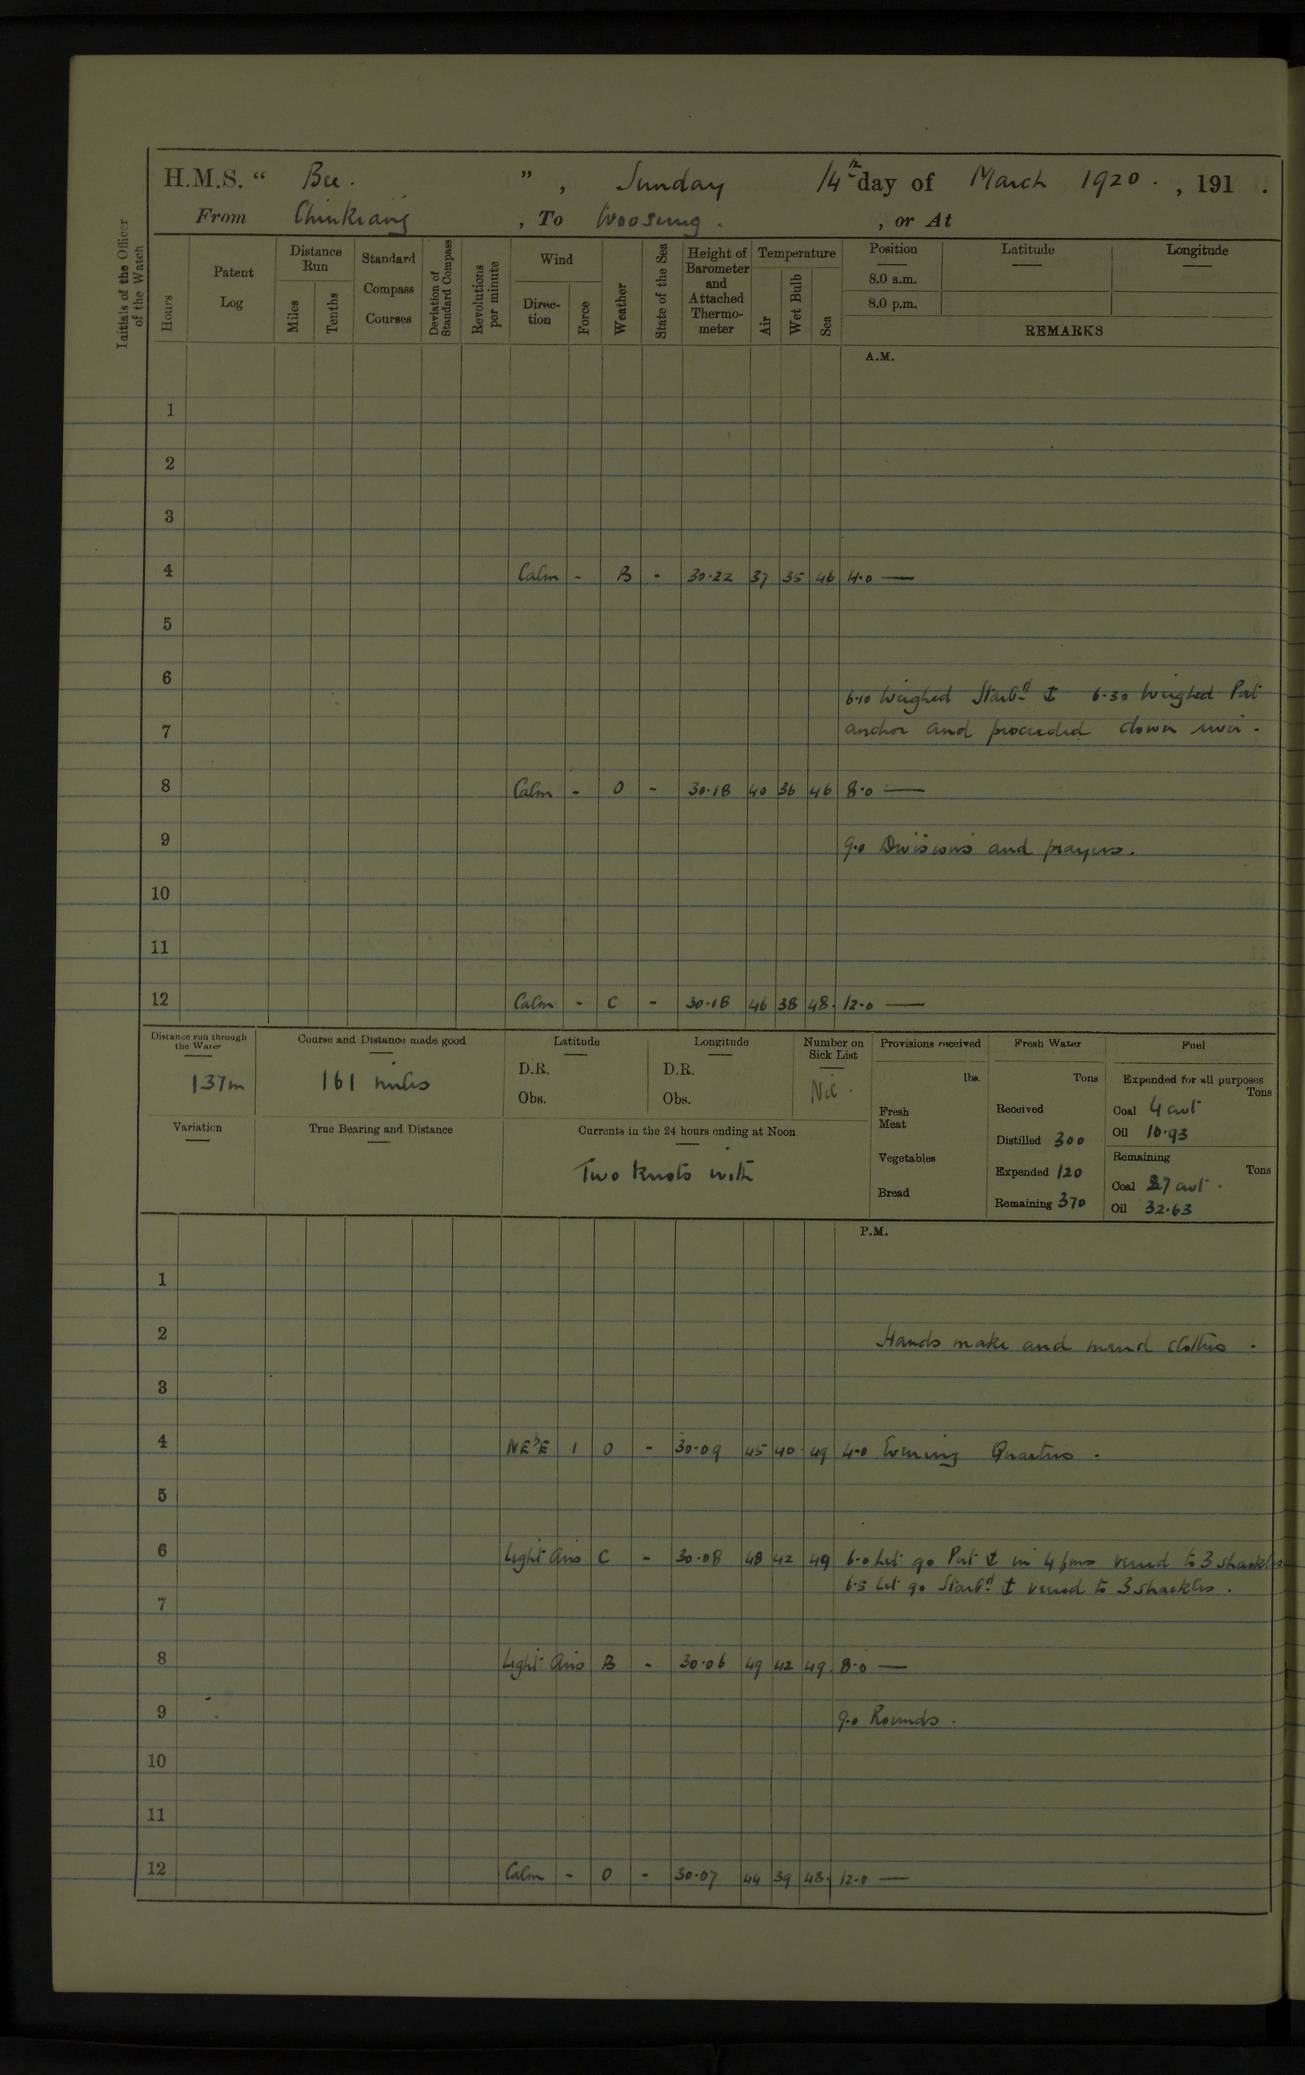 H.M.S. “ Bee. ” , Sunday 14th day of March 1920 . , 191 .
From Chinkiang , To Woosung . , or At
Initials of the Officer of the Watch
Hours
Patent Log
Distance Run
Miles
Tenths
Standard Compass Courses
Deviation of Standard Compass
Revolutions per minute
Wind
Direction
Force
Weather
State of the Sea
Height of Barometer and Attached Thermometer
Temperature
Air
Wet Bulb
Sea
Position Latitude Longitude
8.0 a.m.
8.0 p.m.
REMARKS
A.M.
1
2
3
4 Calm - B - 30.22 37 35 46 4.0 —
5
6
6.10 Weighed Starbd ⚓ 6.30 Weighed Port
7 anchor and proceeded down river .
8 Calm - O - 30.18 40 36 46 8.0 —
9 9.0 Divisions and prayers .
10
11
12 Calm - C - 30.18 46 38 48. 12.0 —
Distance run through the Water
137m
Course and Distance made good
161 miles
Latitude
D.R.
Obs.
Longitude
D.R.
Obs.
Number on Sick List
Nil .
Provisions received
lbs.
Fresh Meat
Vegetables
Bread
Fresh Water
Tons
Received
Distilled 300
Expended 120
Remaining 370
Fuel
Expended for all purposes
Tons
Coal 4 cwt
Oil 10.93
Remaining
Tons
Coal 27 cwt .
Oil 32.63
Variation
True Bearing and Distance
Currents in the 24 hours ending at Noon
Two Knots with
P.M.
1
2 Hands make and mend clothes .
3
4 NE'E 1 O - 30.09 45 40 49 4.0 Evening Quarters .
5
6 Light Airs C - 30.08 48 42 49 6.0 Let go Port ⚓ in 4 fms veered to 3 shackles
6.5 Let go Starbd ⚓ veered to 3 shackles .
7
8 Light Airs B - 30.06 49 42 49. 8.0 —
9 9.0 Rounds .
10
11
12 Calm - O - 30.07 44 39 48. 12.0 —